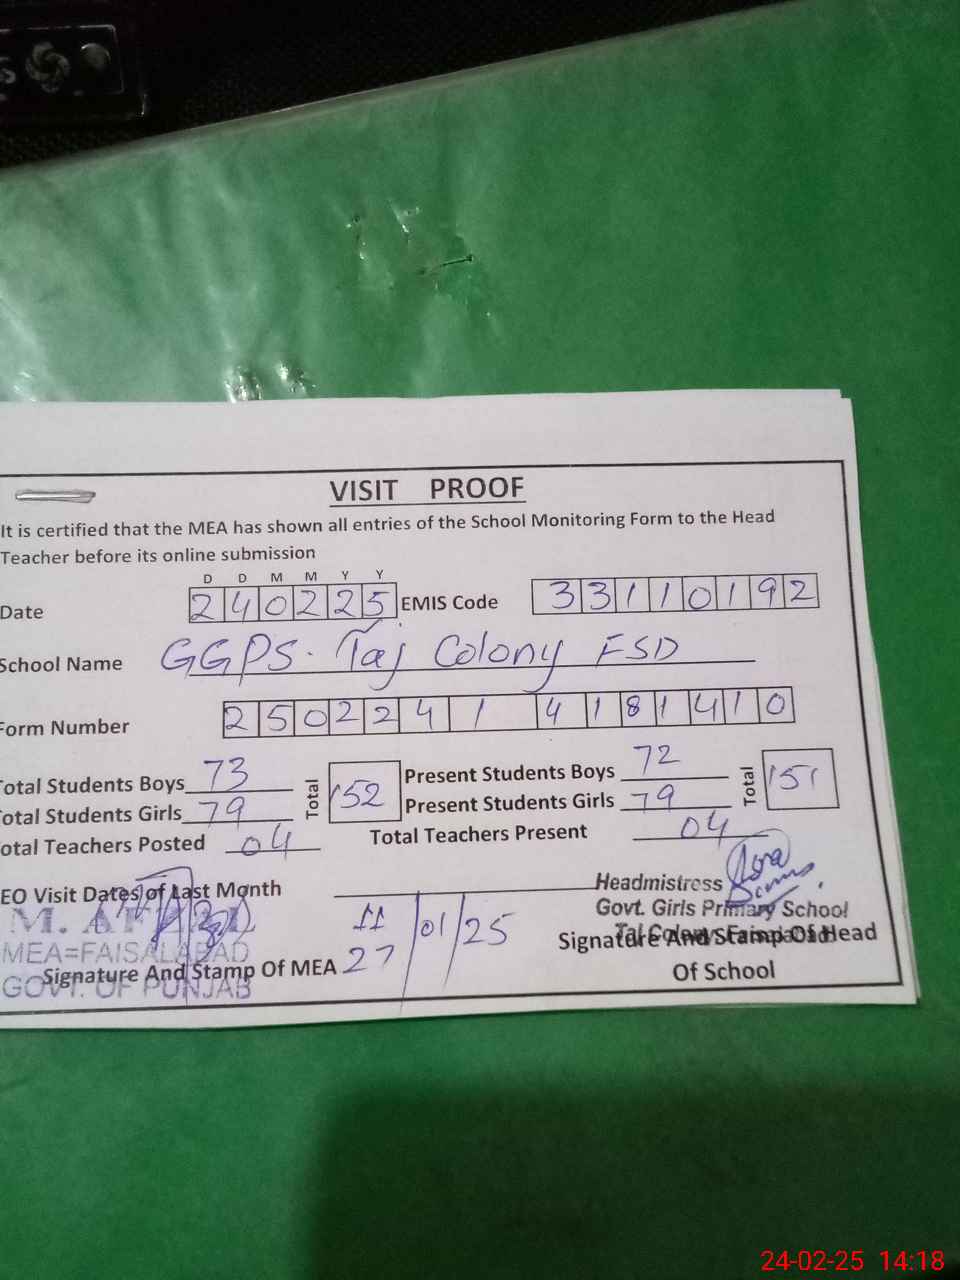 VISIT PROOF
It is certified that the MEA has shown all entries of the School Monitoring Form to the Head
Teacher before its online submission
D D M M Y Y
Date 240225 EMIS Code 33110192
School Name GGPS. Taj Colony FSD
Form Number 25022414181410
Total Students Boys 73 Total 152 Present Students Boys 72 Total 151
Total Students Girls 79 Present Students Girls 79
Total Teachers Posted 04 Total Teachers Present 04
EO Visit Dates of Last Month 11 27 /01/25
Headmistress
Govt. Girls Primary School
Taj Colony Faisalabad
M.
MEA=FAISALABAD
GOVT. OF PUNJAB
Signature And Stamp Of MEA
Signature And Stamp Of Head
Of School
24-02-25 14:18